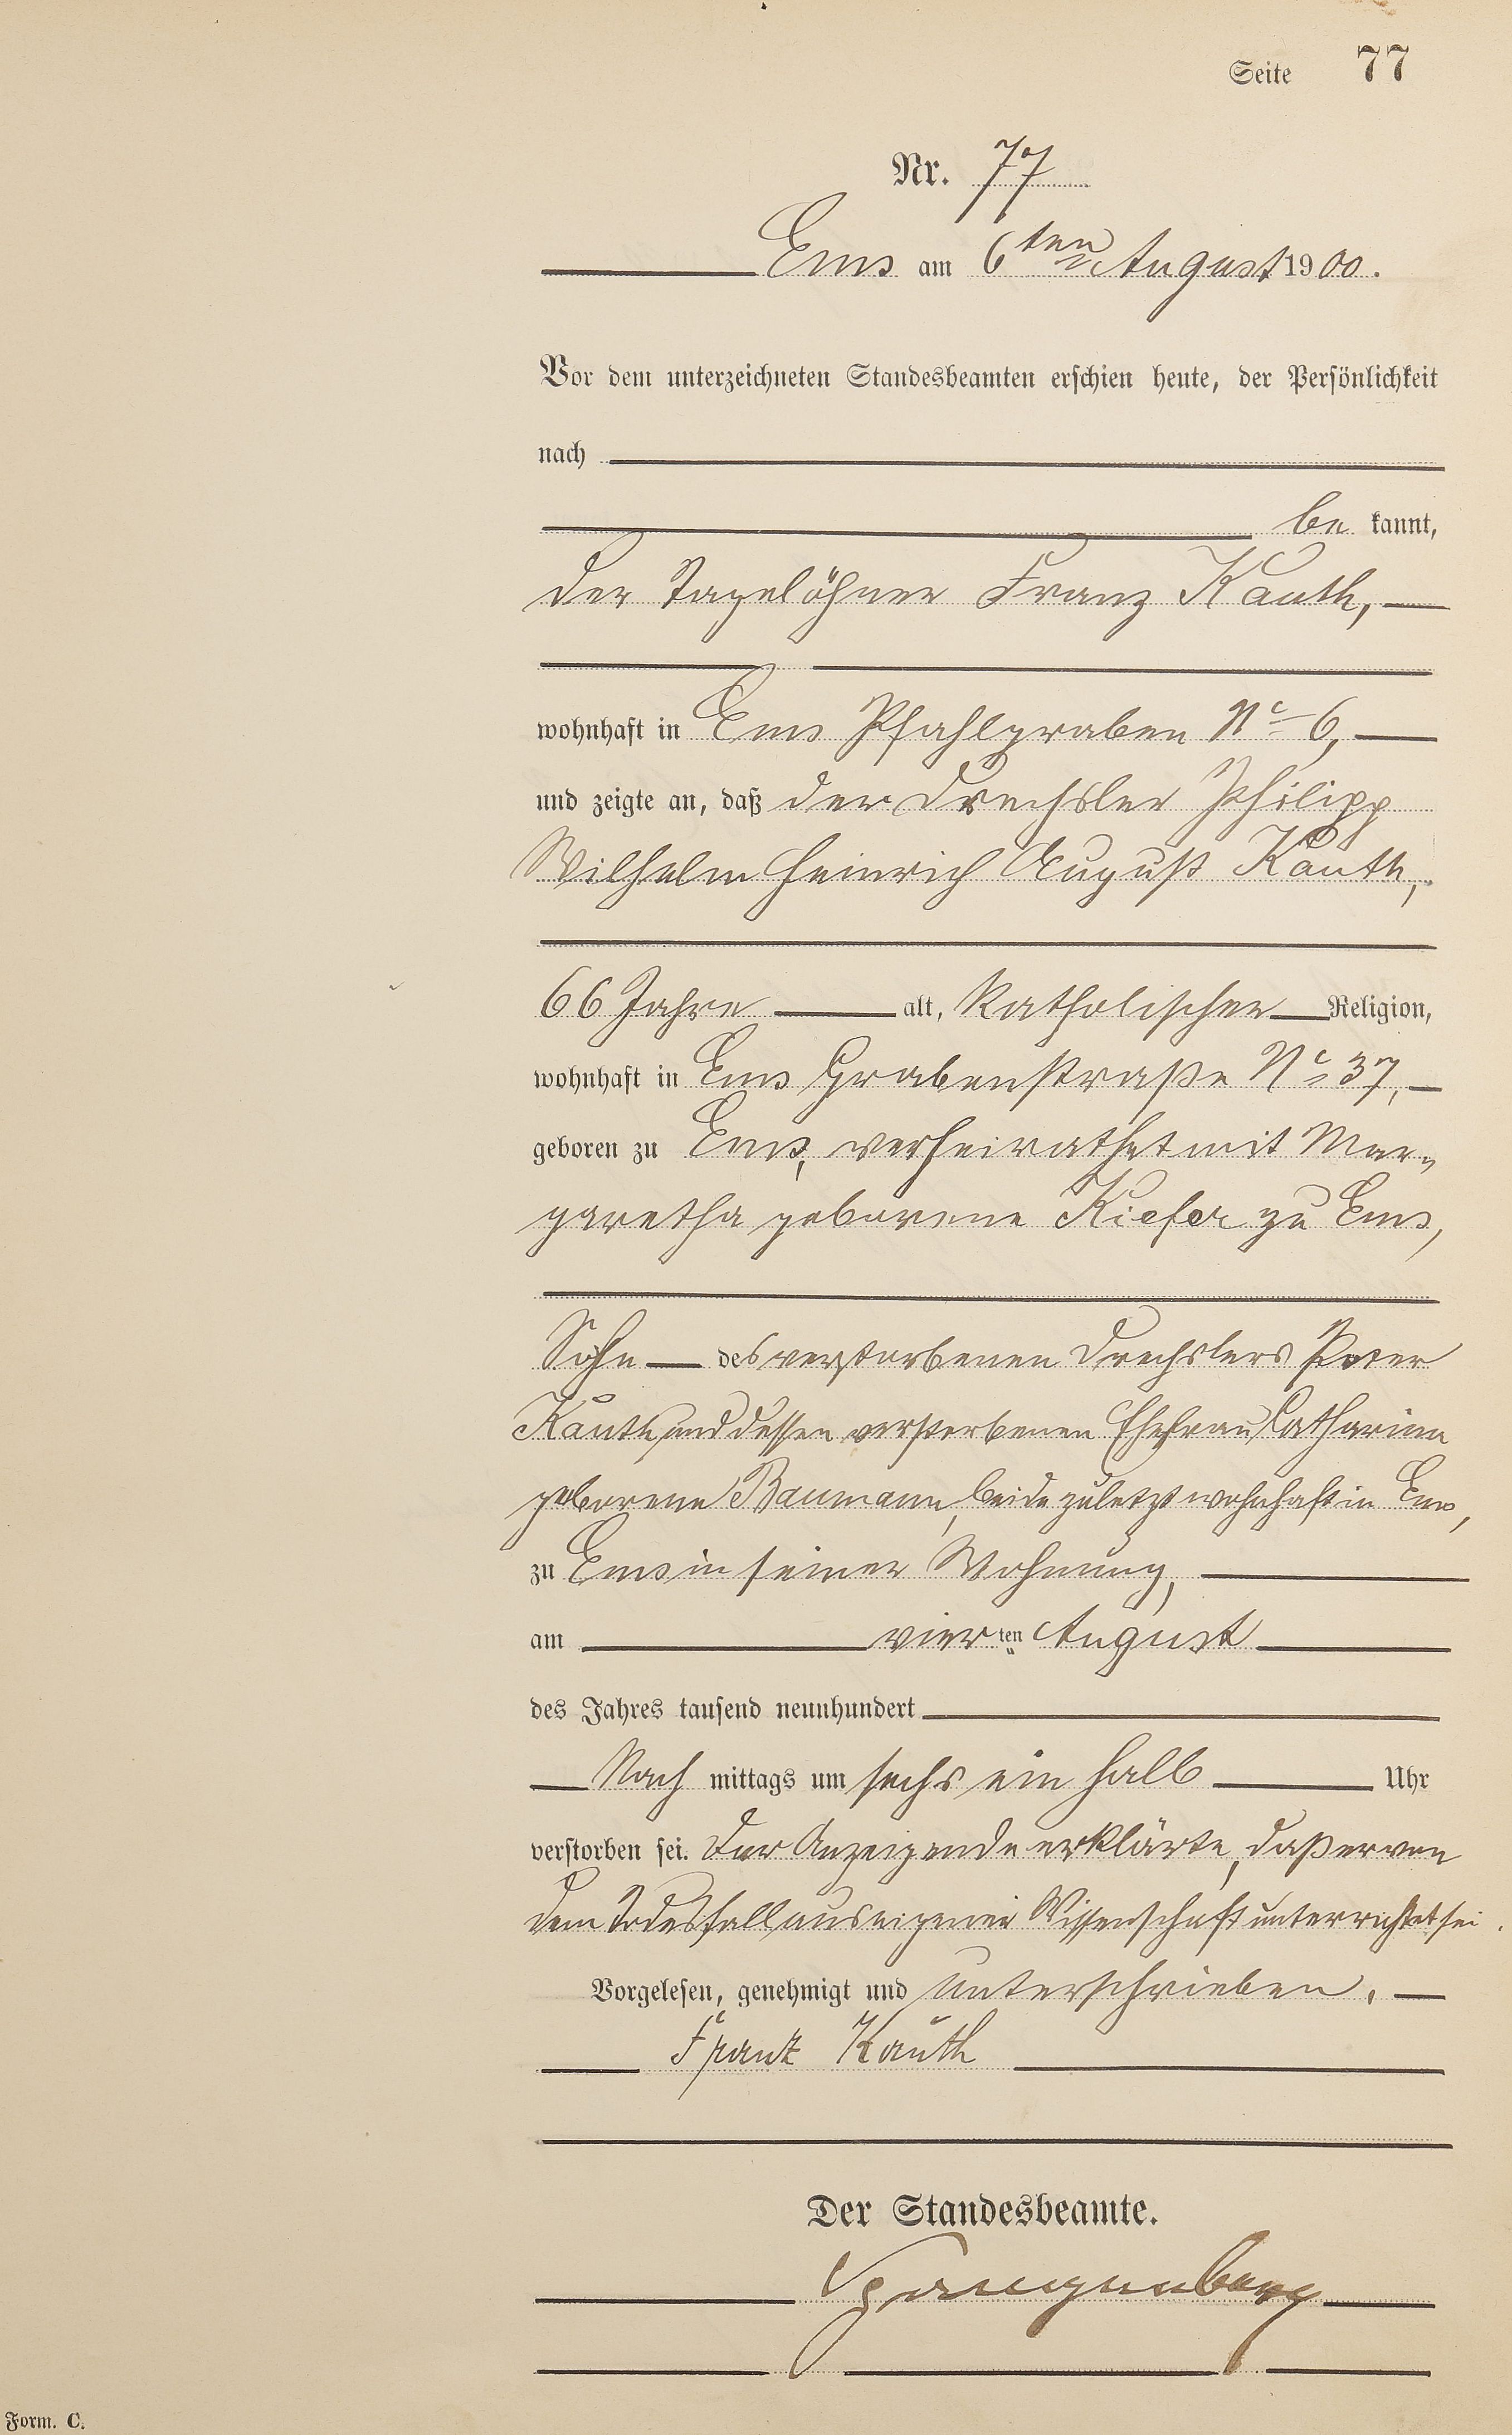 Seite 77
Nr. 77
Ems am 6ten August 1900.
Vor dem unterzeichneten Standesbeamten erschien heute, der Persönlichkeit
nach
be kannt,
der Tagelöhner Franz Kauth,
wohnhaft in Ems Pfahlgraben No 6,
und zeigte an, daß der Drechsler Philipp
Wilhelm Heinrich August Kauth,
66 Jahre alt, katholischer Religion,
wohnhaft in Ems Grabenstraße No 37,
geboren zu Ems, verheirathet mit Mar-
garetha geborene Kiefer zu Ems,
Sohn des verstorbenen Drechslers Peter
Kauth und dessen verstorbenen Ehefrau Catharina
geborene Baumann, beide zuletzt wohnhaft in Ems,
zu Ems in seiner Wohnung,
am vierten August
des Jahres tausend neunhundert
Nach mittags um sechs ein halb Uhr
verstorben sei. Der Anzeigende erklärte, daß er von
dem Todesfall aus eigener Wissenschaft unterrichtet sei.
Vorgelesen, genehmigt und unterschrieben.
Franz Kauth
Der Standesbeamte.
Spangenberg
Form. C.